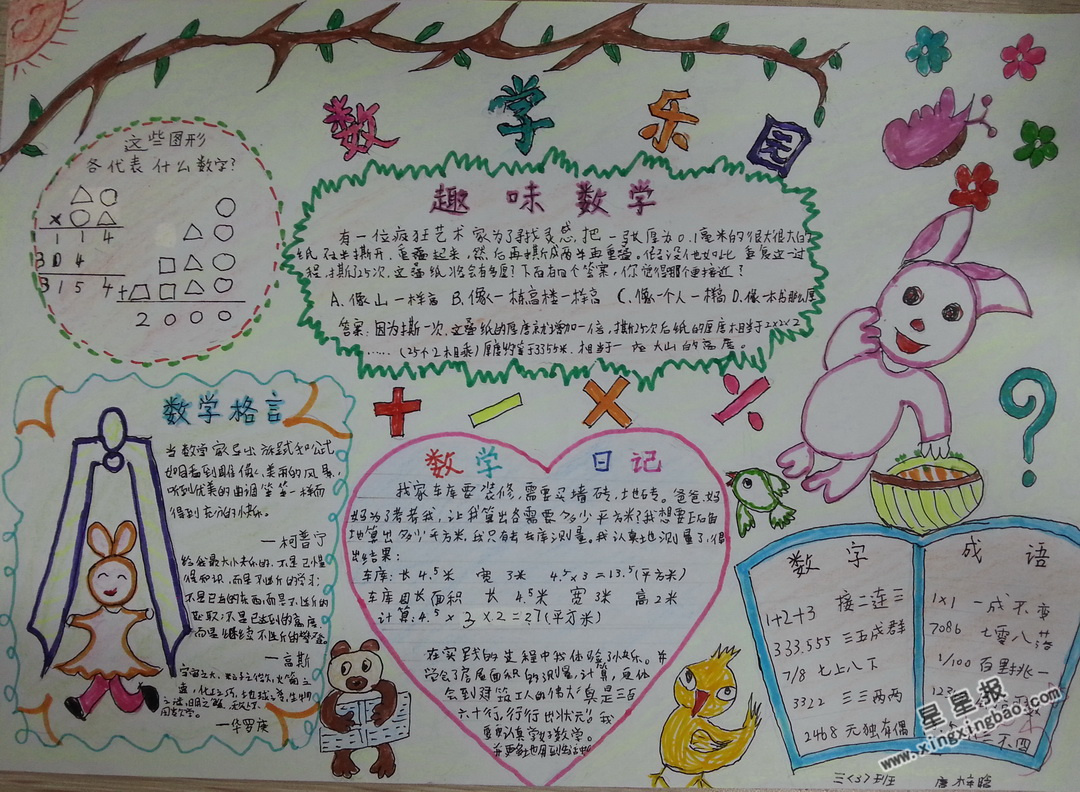 数学乐园
这些图形
各代表什么数字?
△○
×○△
1 1 4
3 0 4
3 1 5 4
○
△○
□△○
+□□△○
2 0 0 0
趣味数学
有一位疯狂艺术家为了寻找灵感,把一张厚为0.1毫米的很大很大的
纸
程,撕了25次,这叠纸将会有多厚?下面有四个答案,你觉得哪个更接近?
A.像山一样高 B.像一栋高楼一样高 C.像一个人一样高 D.像一本书那么厚
答案:因为撕一次,这叠纸的厚度就增加一倍,撕25次后纸的厚度相当于2×2×2
……(25个2相乘)厚度约等于3355米.相当于一座大山的高度。
+ − × ÷
数学格言
当数学家导出方程式和公式
如同看到雕像、美丽的风景,
听到优美的曲调等等一样而
得到充分的快乐。
—柯普宁
给我最大快乐的,不是已懂
得知识,而是不断的学习;
不是已有的东西,而是不断的
获取;不是已达到的高度,
而是继续不断的攀登。
—高斯
宇宙之大,粒子之微,火箭之
速,化工之巧,地球之变,生物
之谜,日用之繁,无处不
用数学。
—华罗庚
数学日记
我家车库要装修,需要买墙砖,地砖。爸爸,妈
妈为了考考我,让我算出各需要多少平方米?我想要正确
地算出多少平方米,我只有去车库测量。我认真地测量了,得
出结果:
车库:长4.5米 宽3米 4.5×3=13.5(平方米)
车库四长面积 长4.5米 宽3米 高2米
计算:4.5×3×2=27(平方米)
在实践的过程中我体验了快乐。并
学会了房屋面积的测量,计算,更体
会到建筑工人的伟大!真是三百
六十行,行行出状元!我
要更认真学好数学。
?
数字成语
1+2+3 接二连三
333.555 三五成群
7/8 七上八下
3322 三三两两
2468 无独有偶
1×1 一成不变
7086 七零八落
1/100 百里挑一
不四
三(3)班
唐
星星报
www.xingxingbao.com